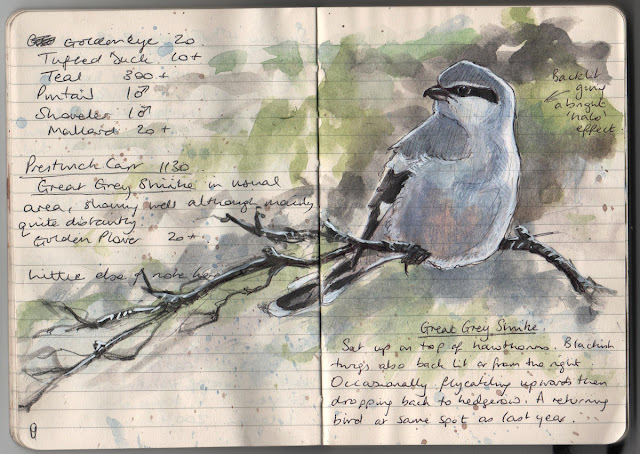 Goldeneye 20
Tufted Duck 10+
Teal 300+
Pintail 1♂
Shoveler 1♂
Mallard 20+
Prestwick Carr 1130
Great Grey Shrike in usual
area, showing well although mainly
quite distantly
Golden Plover 20+
Little else of note here
Backlit
giving
a bright
'halo'
effect.
Great Grey Shrike.
Sat up on top of hawthorns. Blackish
twigs also back lit or from the right
Occasionally flycatching upwards then
dropping back to hedgerow. A returning
bird at same spot as last year.